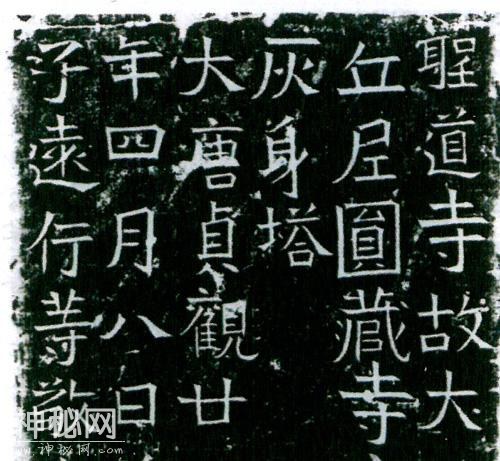 聖道寺故大
丘尼圓藏寺
灰身塔
大唐貞觀廿
年四月八日
子遠行等敬
神秘网
www.神秘网.com